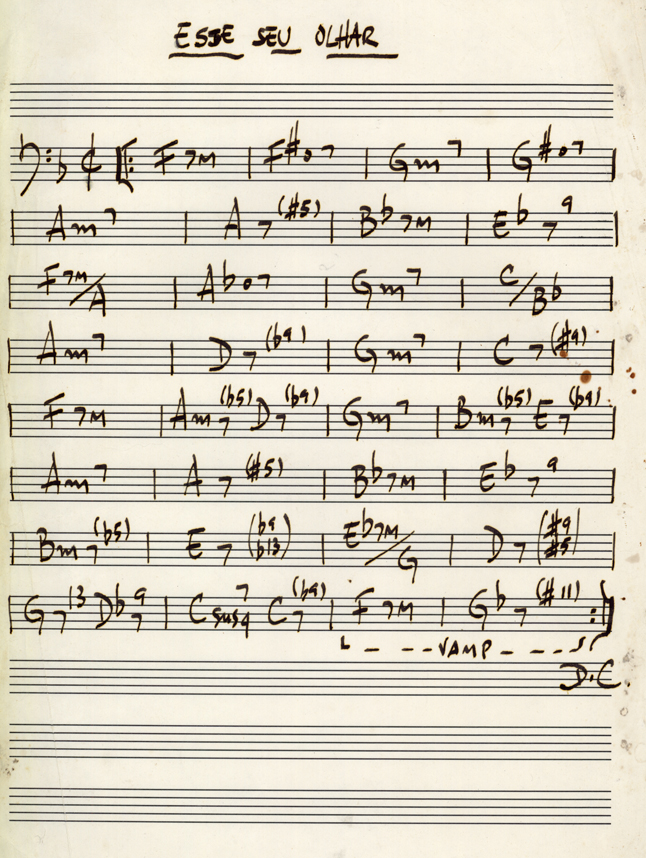 ESSE SEU OLHAR
F7M F#o7 Gm7 G#o7
Am7 A7(#5) Bb7M Eb79
F7M/A Abo7 Gm7 C/Bb
Am7 D7(b9) Gm7 C7(#9)
F7M Am7(b5) D7(b9) Gm7 Bm7(b5) E7(b9)
Am7 A7(#5) Bb7M Eb79
Bm7(b5) E7(b9 b13) Eb7M/G D7(#9 #5)
G713 Db79 C7sus4 C7(b9) F7M Gb7(#11)
VAMP
D.C.